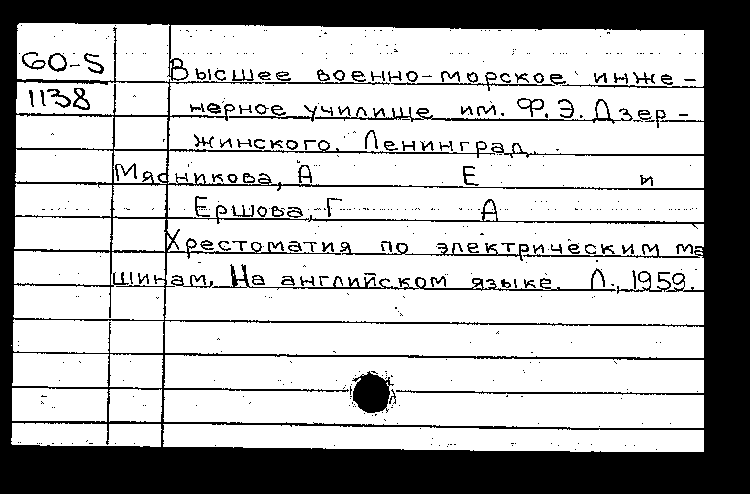 60-5
1138
Высшее военно-морское инже-
нерное училище им. Ф.Э. Дзер-
жинского. Ленинград.
Мясникова, А Е и
Ершова, Г А
Хрестоматия по электрическим ма
шинам. На английском языке. Л., 1959.